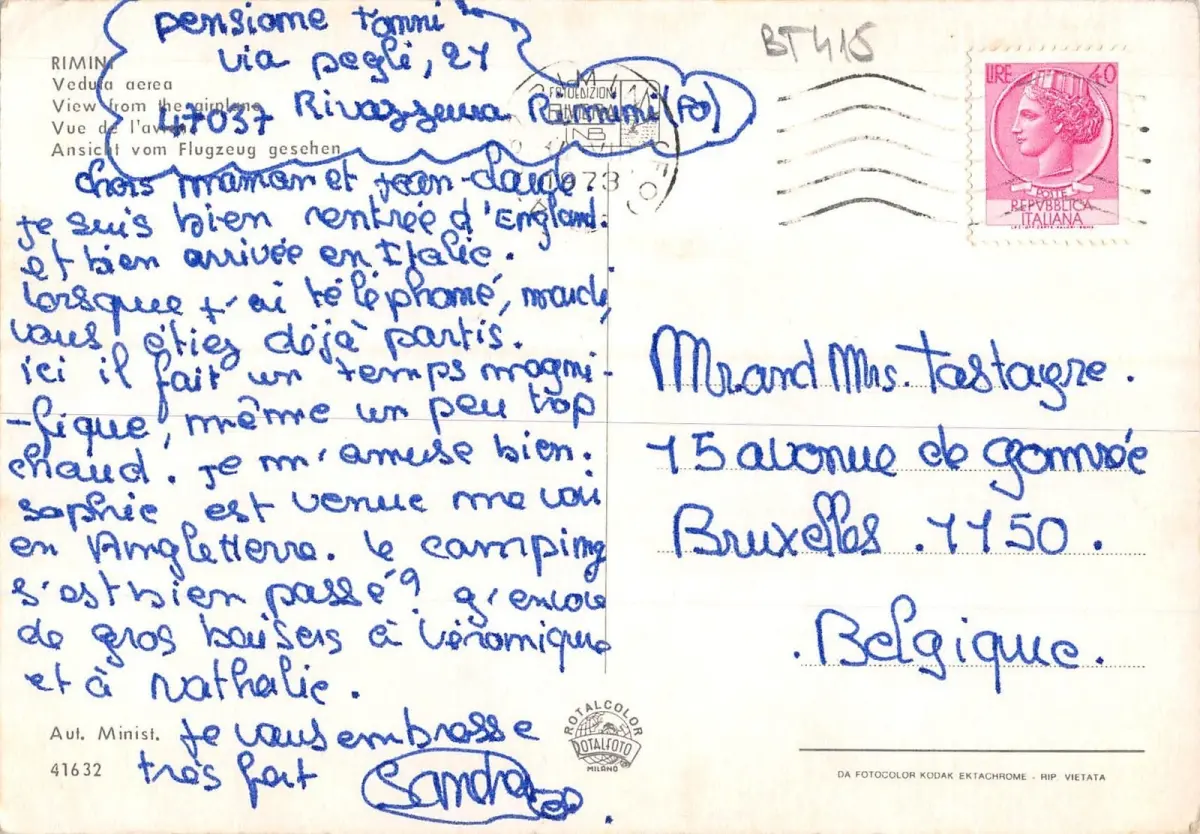 pensione tonni
via pegli, 27
47037 Rivazzurra Rimini (FO)
RIMINI
Veduta aerea
View from the airplane
Vue de l'avion
Ansicht vom Flugzeug gesehen
chers maman et jean-claude.
je suis bien rentrée d'England.
et bien arrivée en Italie.
lorsque j'ai téléphoné, mardi,
vous étiez déjà partis.
ici il fait un temps magni-
-fique, même un peu trop
chaud. je m'amuse bien.
sophie est venue me voir
en Angleterre. le camping
s'est bien passé?
de gros baisers à Véronique
et à Nathalie.
je vous embrasse
très fort Sandra
Aut. Minist.
41632
ROTALCOLOR
ROTALFOTO
MILANO
BT415
1973
LIRE 40
POSTE
REPVBBLICA
ITALIANA
Mr. and Mrs. Tastayre.
15 avenue de
Bruxelles. 1150.
.Belgique.
DA FOTOCOLOR KODAK EKTACHROME - RIP. VIETATA